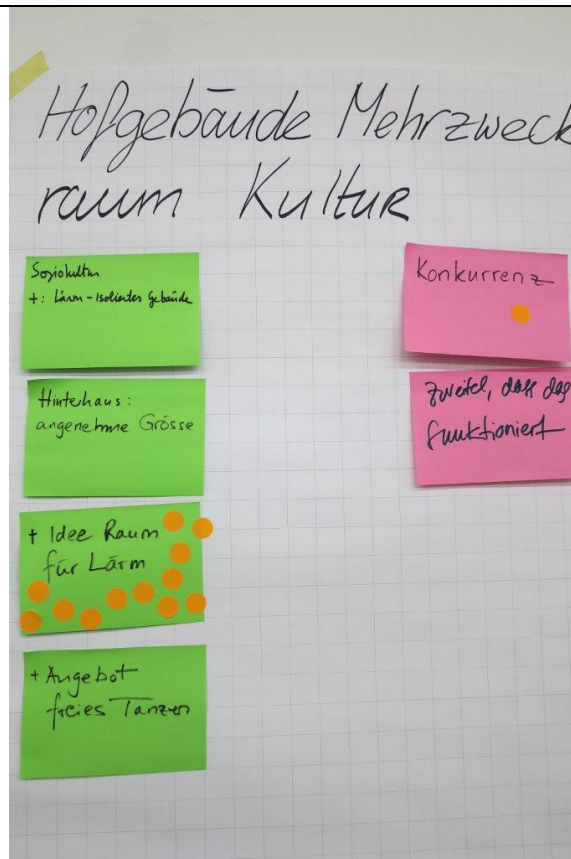 Hofgebäude Mehrzweck
raum Kultur
Soziokultur
+: Lärm-isoliertes Gebäude
Hinterhaus:
angenehme Grösse
+ Idee Raum
für Lärm
+ Angebot
freies Tanzen
Konkurrenz
Zweifel, dass das
funktioniert